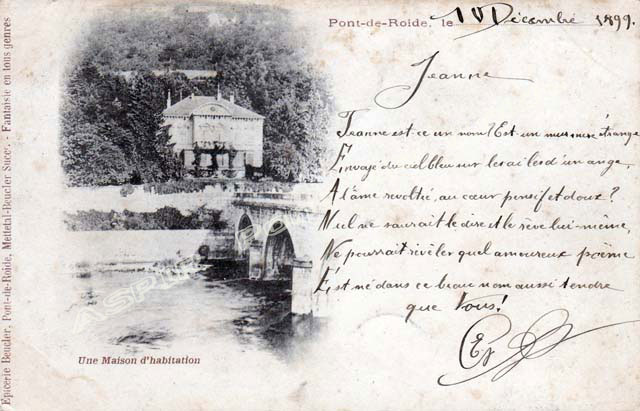 Pont-de-Roide, le 10 Décembre 1899.
Jeanne
Jeanne est-ce un nom? Est-un murmure étrange
Envoyé du ciel bleu sur les ailes d'un ange
A l'âme revoltée, au cœur pensif et doux?
Nul ne saurait le dire et le rêve lui-même
Ne pourrait révèler quel amoureux poëme
Est né dans ce beau nom aussi tendre
que Vous!
Une Maison d'habitation
Epicerie Beucler, Pont-de-Roide, Mettetal-Beucler Succr. - Fantaisie en tous genres